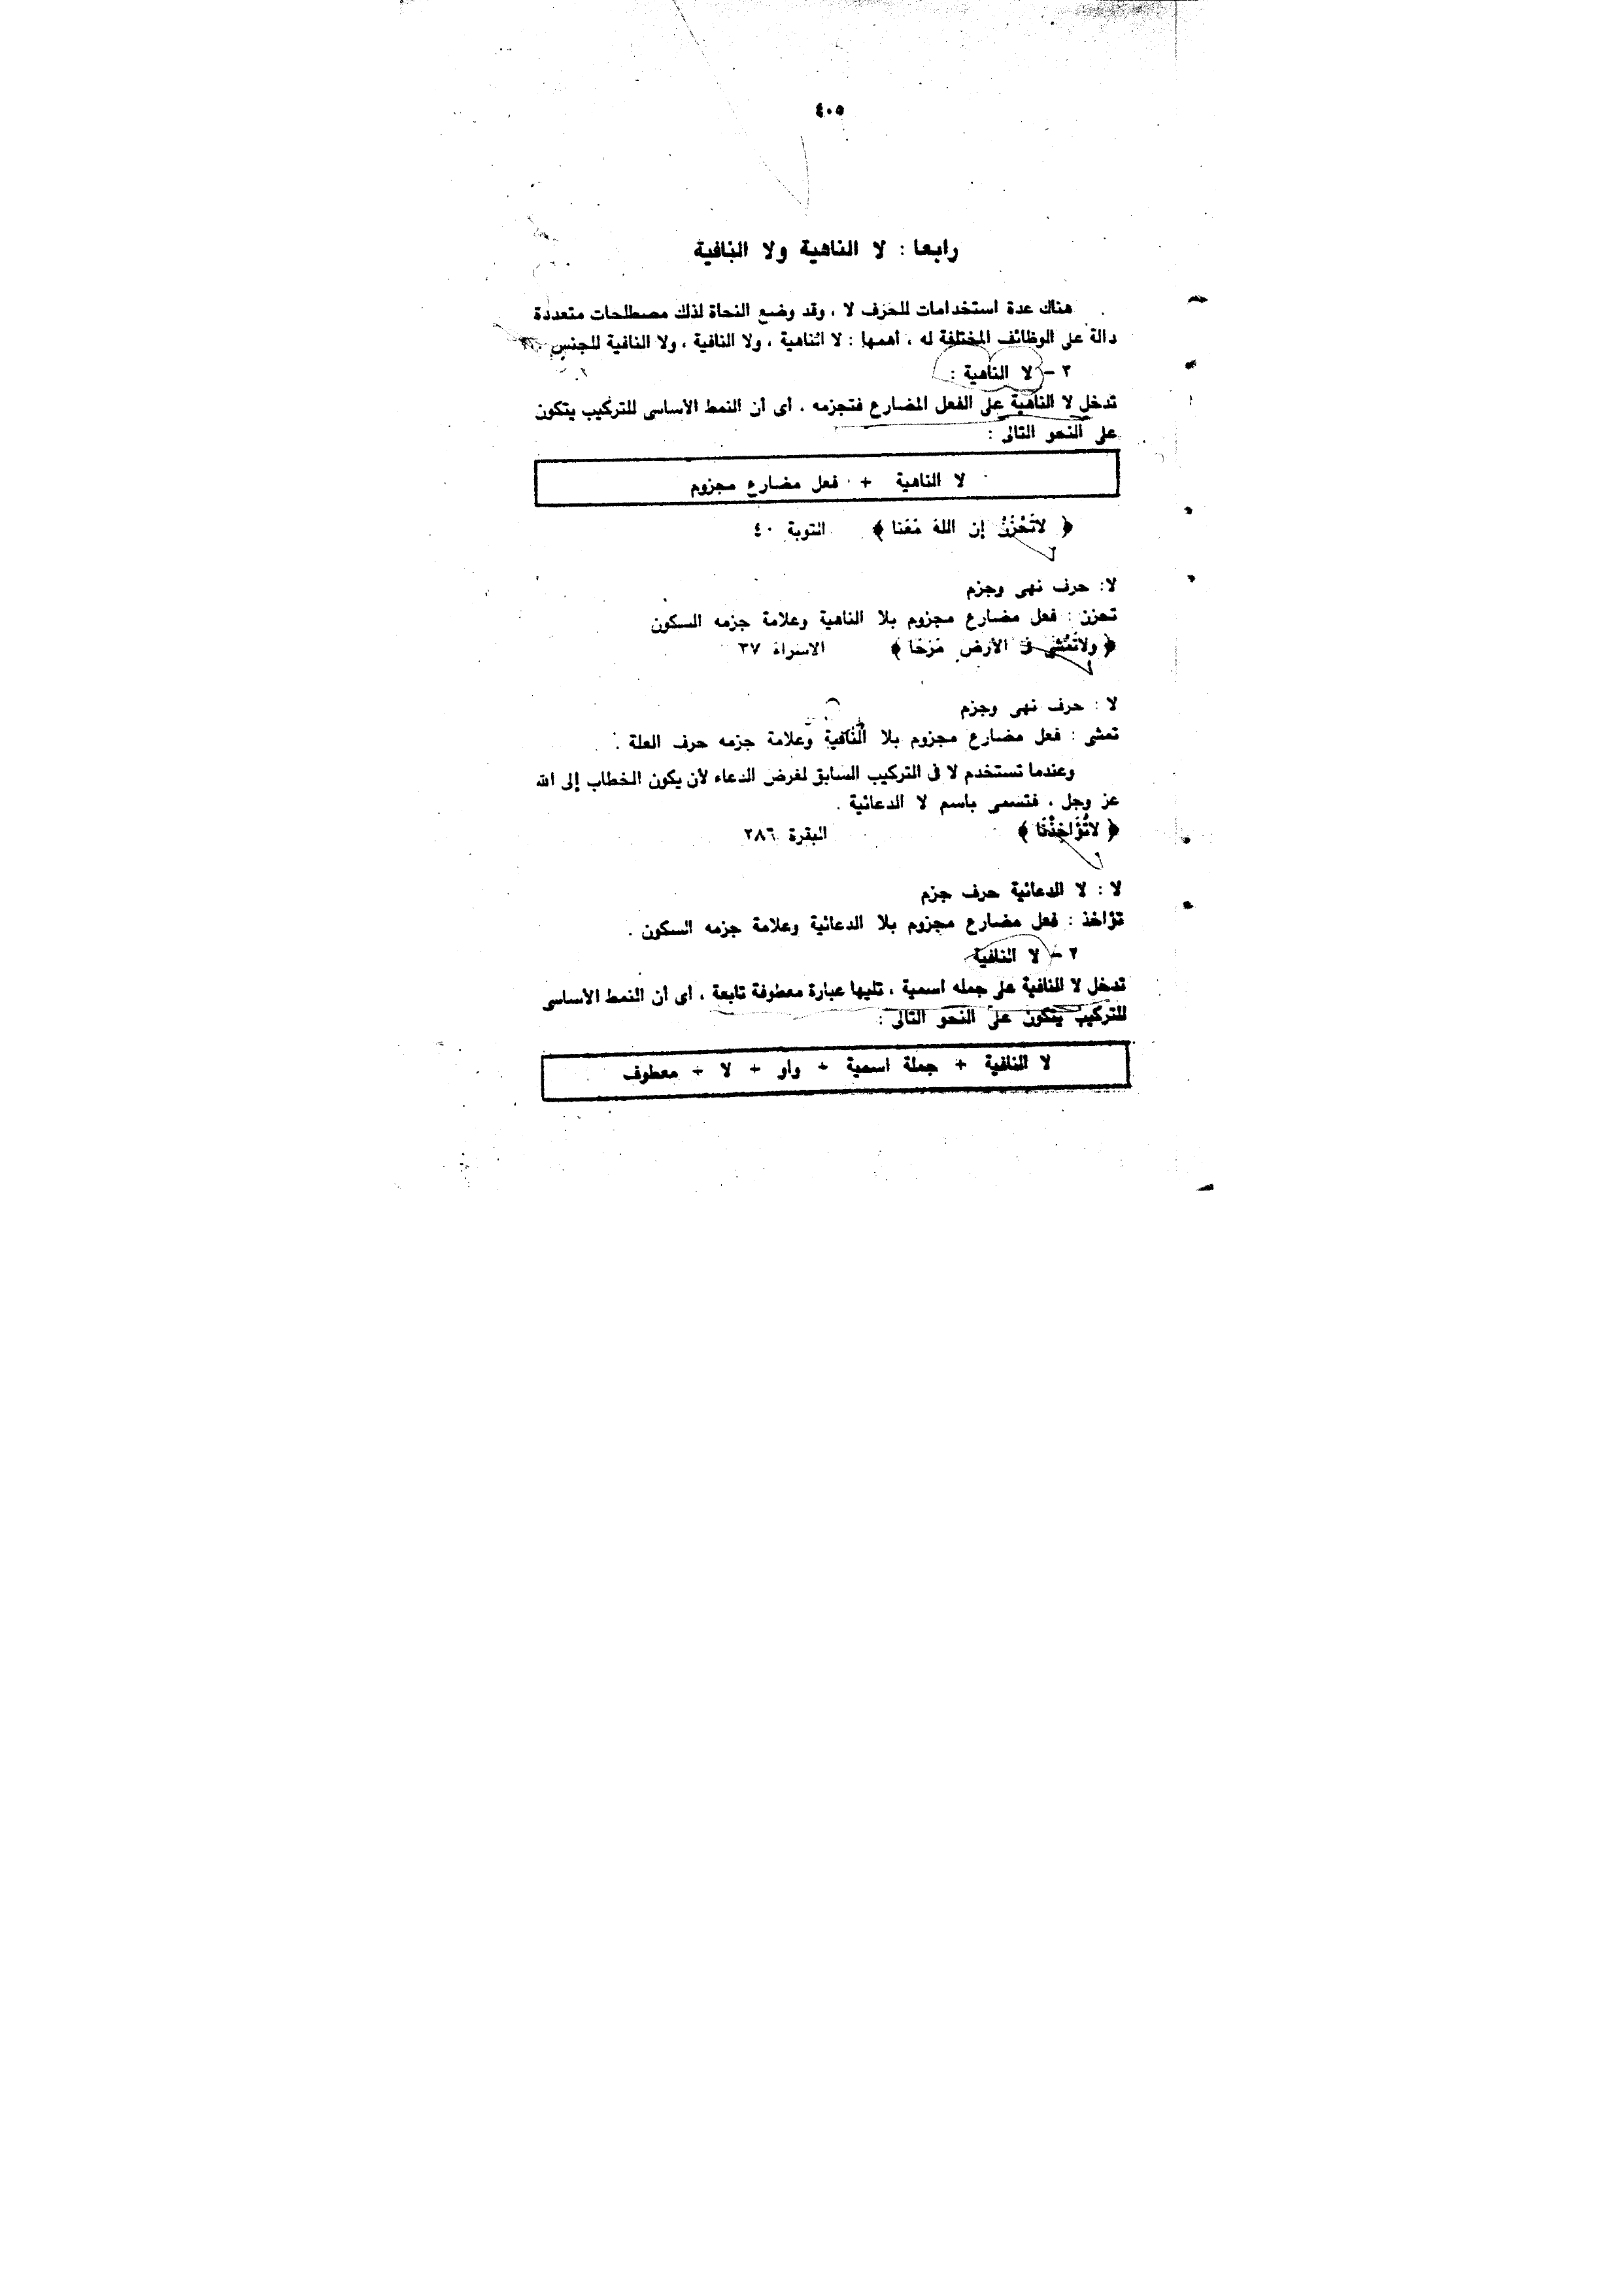 ٤٠٥
رابعا : لا الناهية ولا النافية
هناك عدة استخدامات للحرف لا ، وقد وضع النحاة لذلك مصطلحات متعددة
دالة على الوظائف المختلفة له ، أهمها : لا الناهية ، ولا النافية ، ولا النافية للجنس .
٢ - لا الناهية :
تدخل لا الناهية على الفعل المضارع فتجزمه . أى أن النمط الأساسى للتركيب يتكون
على النحو التالى :
لا الناهية + فعل مضارع مجزوم
﴿ لاتَحْزَنْ إن اللهَ مَعَنا ﴾ التوبة ٤٠
لا: حرف نهى وجزم
تحزن : فعل مضارع مجزوم بلا الناهية وعلامة جزمه السكون
﴿ ولاتَمْشى فى الأرض مَرَحًا ﴾ الاسراء ٣٧
لا : حرف نهى وجزم
تمشى : فعل مضارع مجزوم بلا النافية وعلامة جزمه حرف العلة .
وعندما تستخدم لا فى التركيب السابق لغرض الدعاء لأن يكون الخطاب إلى الله
عز وجل ، فتسمى باسم لا الدعائية .
﴿ لاتُؤَاخِذْنَا ﴾ البقرة ٢٨٦
لا : لا الدعائية حرف جزم
تؤاخذ : فعل مضارع مجزوم بلا الدعائية وعلامة جزمه السكون .
٢ - لا النافية
تدخل لا النافية على جمله اسمية ، تليها عبارة معطوفة تابعة ، أى أن النمط الأساسى
للتركيب يتكون على النحو التالى :
لا النافية + جملة اسمية + واو + لا + معطوف